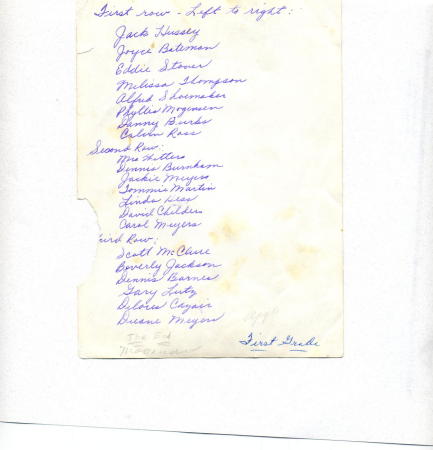 First row - Left to right:
Jack Hussey
Joyce Bateman
Eddie Stover
Melissa Thompson
Alfred Shoemaker
Phyllis Mogensen
Danny Burbs
Calvin Ross
Second Row:
Mrs
Dennis Burnham
Jackie Meyers
Tommie Martin
Linda Hess
David Childers
Carol Meyers
ird Row:
Scott McClure
Beverly Jackson
Dennis Barnes
Gary Lutz
Delores
Duane Meyers
First Grade